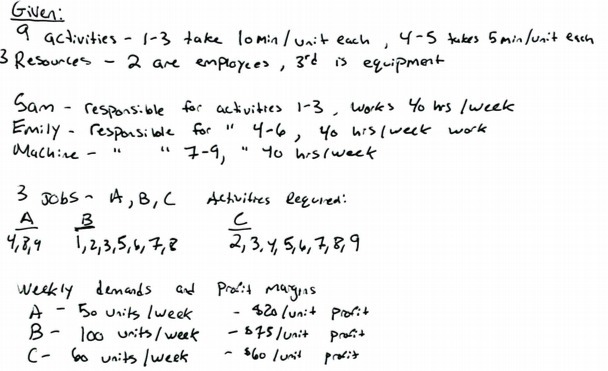 Given:
9 activities - 1-3 take 10 min/unit each, 4-5 takes 5 min/unit each
3 Resources - 2 are employees, 3rd is equipment
Sam - responsible for activities 1-3, works 40 hrs /week
Emily - responsible for " 4-6, 40 hrs/week work
Machine - " " 7-9, " 40 hrs/week
3 Jobs - A, B, C Activities Required:
A B C
4,8,9 1,2,3,5,6,7,8 2,3,4,5,6,7,8,9
Weekly demands and Profit Margins
A - 50 units /week - $20/unit profit
B - 100 units/week - $75/unit profit
C - 60 units /week - $60/unit profit